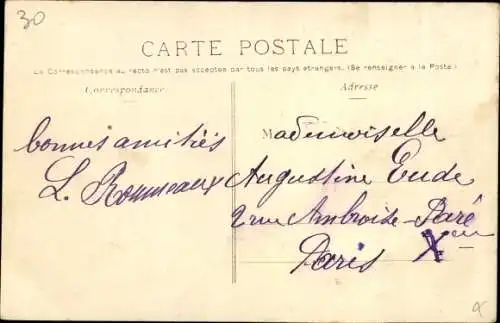 30
CARTE POSTALE
La Correspondance au recto n'est pas acceptée par tous les pays étrangers. (Se renseigner à la Poste)
Correspondance
Adresse
bonnes amitiés
L.
Mademoiselle
Augustine Eude
2 rue Ambroise-Paré
Paris Xème